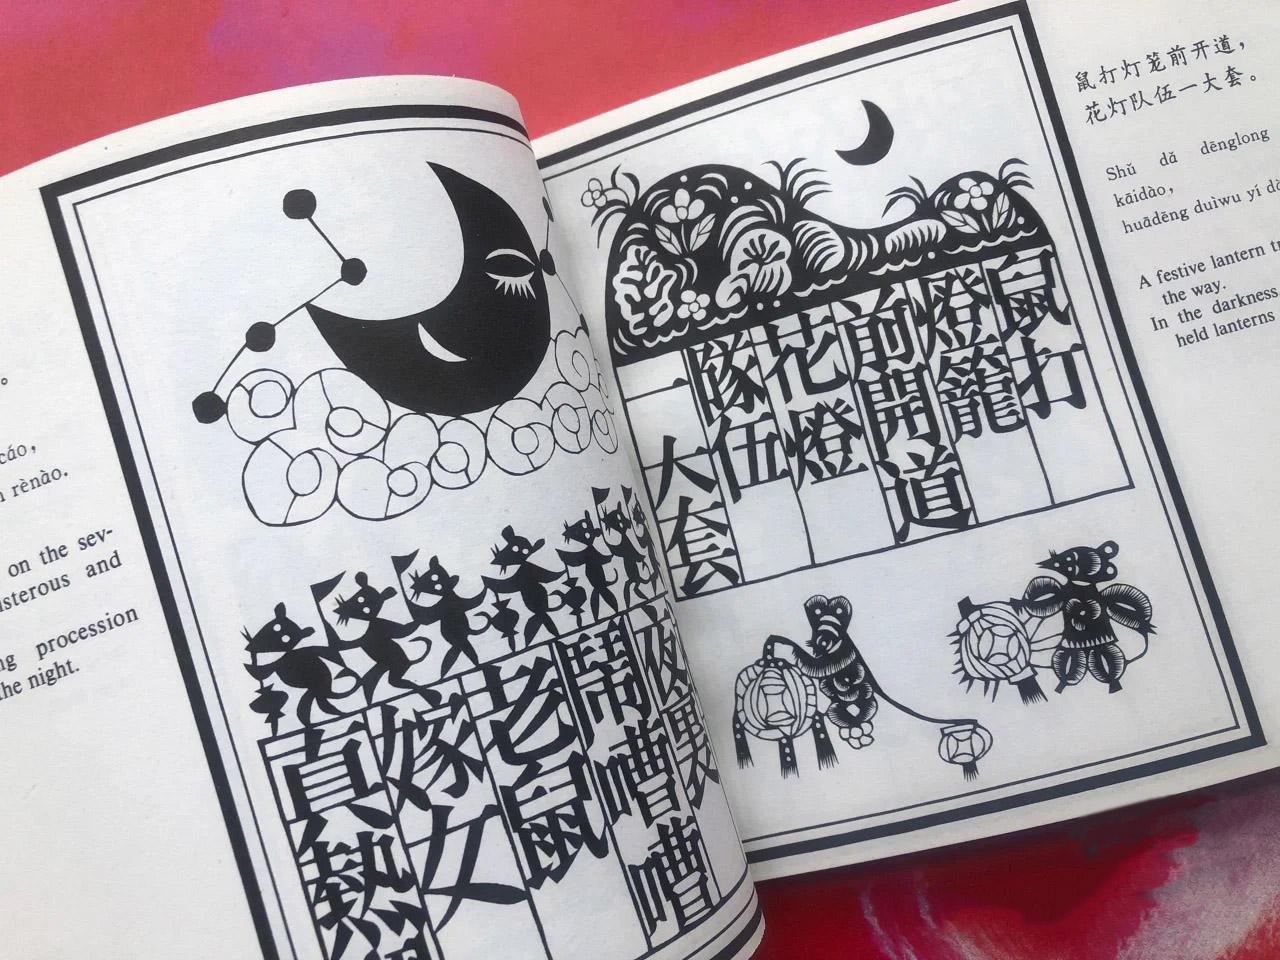 。
cáo,
rènào.
on the sev-
and
procession
night.
夜裏
鬧嘈嘈
老鼠
嫁女
真熱
鼠打
燈籠
前開道
花燈
隊伍
一大套
鼠打灯笼前开道，
花灯队伍一大套。
Shǔ dǎ dēnglong
kāidào,
huādēng duìwu yí
A festive lantern
the way.
In the darkness
held lanterns